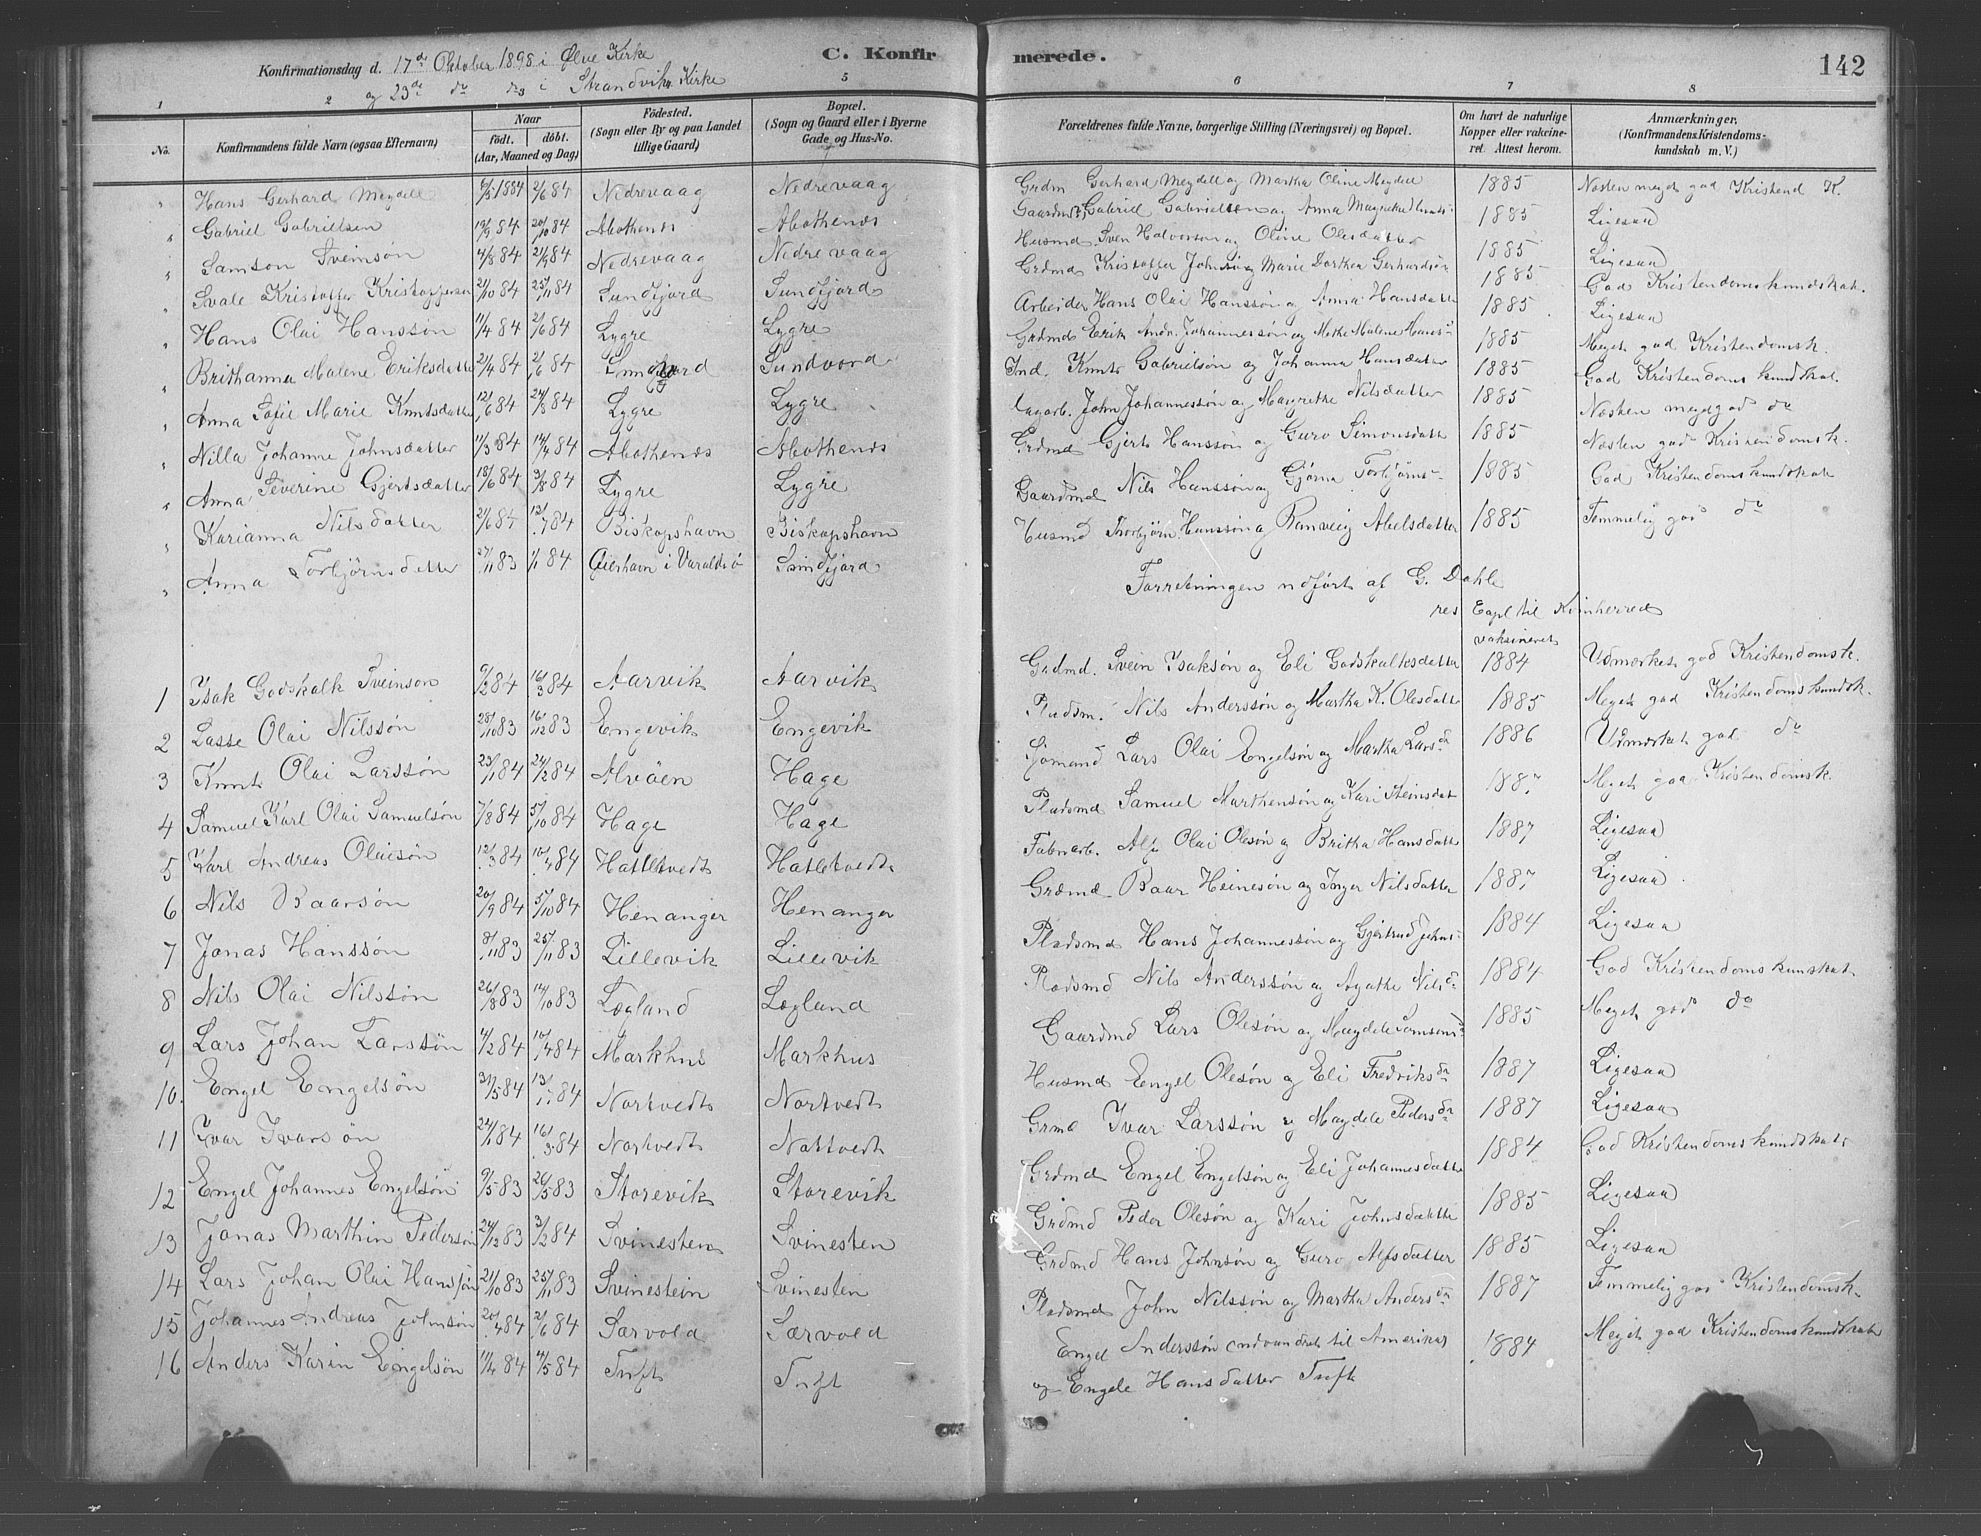 C. Konfirmerede.
142
Konfirmationsdag d. 17de Oktober 1898 i Ølve Kirke
og 23de do do i Strandviks Kirke
1 2 5 6 7 8
No.
Konfirmandens fulde Navn (ogsaa Efternavn)
Naar
født. døbt.
(Aar, Maaned og Dag)
Fødested.
(Sogn eller By og paa Landet tillige Gaard)
Bopæl.
(Sogn og Gaard eller i Byerne Gade og Hus-No.
Forældrenes fulde Navne, borgerlige Stilling (Næringsvei) og Bopæl.
Om havt de naturlige Kopper eller vakcineret. Attest herom.
Anmærkninger.
(Konfirmandens Kristendomskundskab m. V.)
" Hans Gerhard Meydell 6/3 1884 2/6 84 Nedrevaag Nedrevaag Grdm Gerhard Meydell og Martha Oline Meydell 1885 Næsten meget god Kristend K.
" Gabriel Gabrielsen 19/9 84 20/10 84 Abothenes Abothenes Gaardmd Gabriel Gabrielsen og Anna 1885 Ligesaa
" Samson Sveinsøn 4/8 84 21/9 84 Nedrevaag Nedrevaag Husmd Sven Halvorsøn og Oline Olesdatter 1885 Ligesaa
" Svale Kristoffer Kristoffersen 21/10 84 25/11 84 Sundfjord Sundfjord Grdmd Kristoffer Johnsøn og Marie Dorthea Gerhards 1885 God Kristendomskundskab.
" Hans Olai Hanssøn 11/4 84 2/6 84 Lygre Lygre Arbeider Hans Olai Hanssøn og Anna Hansdatter 1885 Ligesaa
" Brithanna Malene Eriksdatter 21/4 84 2/6 84 Sundvord Grdmd Erik Andr. Johannessøn og Mette Malene Hans 1885 Meget god Kristendomsk.
" Anna Sofie Marie Knutsdatter 12/6 84 24/8 84 Lygre Lygre Ind. Knut Gabrielsøn og Johanna Hansdatter 1885 God Kristendomskundskab.
" Nilla Johanne Johnsdatter 11/3 84 14/4 84 Abothenes Abothenes John Johannessøn og Margrethe Nilsdatter 1885 Næsten meget god do
" Anna Severine Gjertsdatter 18/6 84 3/8 84 Lygre Lygre Grdmd Gjert Hanssøn og Guro Simonsdatt 1885 Næsten god Kristendomsk.
" Karianna Nilsdatter 21/6 84 12/7 84 Biskopshavn Biskopshavn Gaardmd Nils Hanssøn og Gjørna Torbjørns 1885 God Kristendomskundskab
" Anna Torbjørnsdatter 27/11 83 1/1 84 i Varaldsø Sundfjord Husmd Torbjørn Hanssøn og Ranveig Abelsdatter 1885 Temmelig god do
Forretningen udført af G. Dahle
res Capl til Kvinherred
vaksineret
1 Isak Godskalk Sveinson 9/2 84 16/3 84 Aarvik Aarvik Grdmd. Svein Isaksøn og Eli Godskalksdatter 1884 Udmærket god Kristendomsk.
2 Lasse Olai Nilssøn 28/10 83 16/12 83 Engevik Engevik Pladsm. Nils Anderssøn og Martha K. Olesdatter 1885 Meget god Kristendomskundsk.
3 Knut Olai Larssøn 23/1 84 24/2 84 Alvøen Hage Sjømand Lars Olai Engelsøn og Martha Larsda 1886 Udmærket god do
4 Samuel Karl Olai Samuelsøn 7/8 84 5/10 84 Hage Hage Pladsmd Samuel Marthensøn og Kari Steinsdat 1887 Meget god Kristendomsk.
5 Karl Andreas Olaisøn 12/3 84 10/4 84 Hatletvedt Hatletvedt Fabrarb. Alf Olai Olesøn og Britha Hansdatte 1887 Ligesaa
6 Nils Baarsøn 20/9 84 5/10 84 Henanger Henanger Grdmd Baar Heinesøn og Inger Nilsdatter 1887 Ligesaa
7 Jonas Hanssøn 8/11 83 25/11 83 Lillevik Lillevik Pladsmd Hans Johannessøn og Gjertrud Johns 1884 Ligesaa
8 Nils Olai Nilssøn 26/8 83 14/10 83 Lægland Lægland Pladsmd Nils Anderssøn og Agathe Nilsd 1884 God Kristendomskunskab.
9 Lars Johan Larssøn 11/2 84 10/4 84 Markhus Markhus Gaardmd Lars Olesøn og Magdele Samsonsd 1885 Meget god do
10. Engel Engelsøn 31/5 84 13/7 84 Nortvedt Nortvedt Husmd Engel Olesøn og Eli Fredriksda 1887 Ligesaa
11 Ivar Ivarsøn 24/1 84 16/3 84 Nortvedt Nottvedt Grmd Ivar Larssøn og Magdele Pedersda 1887 Ligesaa
12 Engel Johannes Engelsøn 9/5 83 26/5 83 Storevik Storevik Grdmd Engel Engelsøn og Eli Johannesdatte 1884 God Kristendomskundskab
13 Jonas Marthin Pedersøn 24/12 83 3/2 84 Svinesten Svinesten Grdmd Peder Olesøn og Kari Johnsdatter 1885 Ligesaa
14 Lars Johan Olai Hanssøn 21/10 83 25/11 83 Svinestein Svinesten Grdmd Hans Johnsøn og Guro Alfsdatter 1885 Ligesaa
15 Johannes Andreas Johnsøn 20/4 84 2/6 84 Særvold Særvold Pladsmd John Nilssøn og Martha Andersda 1887 Temmelig god Kristendomsk.
16 Anders Karin Eingelsøn 11/4 84 4/5 84 Tuft Tuft Engel Anderssøn udvandret til Amerika 1884 Meget god Kristendomskundskab
og Engele Hansdatter Tuft